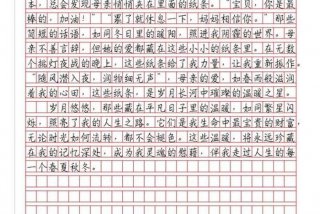 本，总会发现母亲悄悄夹在里面的纸条。"宝贝，你是最
棒的，加油！""累了就休息一下，妈妈相信你。"那些
简短的话语，如同冬日里的暖阳，照进我阴霾的世界。母
亲不善言辞，但她的爱都藏在这些小小的纸条里。在无数
个挑灯夜战的晚上，这些纸条给了我力量，让我重新振作
"随风潜入夜，润物细无声"，母亲的爱如春雨般滋润
着我的心田，这些纸条，是岁月长河中璀璨的温暖之星。
岁月悠悠，那些藏在平凡日子里的温暖，如同繁星闪
烁，照亮了我的人生之路。它们是我生命中最宝贵的财富，
无论时光如何流转，都不会褪色。这些温暖，将永远珍藏
在我的记忆深处，成为我灵魂的慰藉，伴我走过人生的每
一个春夏秋冬。